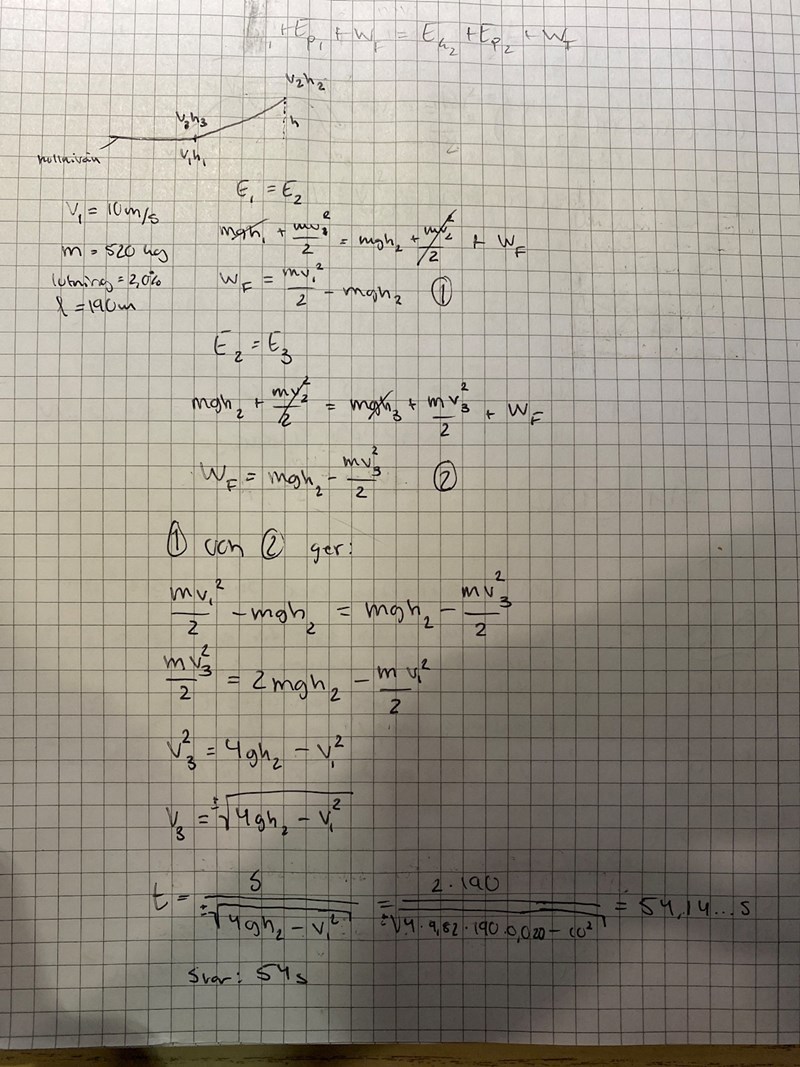 + E_p₁ + W_F = E_k₂ + E_p₂ + W_F
v₂h₂
v₃h₃
h
nollnivån
v₁h₁
E₁ = E₂
v₁ = 10 m/s
mgh₁ + mv₁²/2 = mgh₂ + mv₂²/2 + W_F
m = 520 kg
lutning = 2,0%
W_F = mv₁²/2 - mgh₂ ①
l = 190m
E₂ = E₃
mgh₂ + mv₂²/2 = mgh₃ + mv₃²/2 + W_F
W_F = mgh₂ - mv₃²/2 ②
① och ② ger:
mv₁²/2 - mgh₂ = mgh₂ - mv₃²/2
mv₃²/2 = 2mgh₂ - mv₁²/2
v₃² = 4gh₂ - v₁²
v₃ = ±√(4gh₂ - v₁²)
t = S/±√(4gh₂ - v₁²) = 2·190/±√(4·9,82·190·0,020 - 10²) = 54,14...s
Svar: 54s